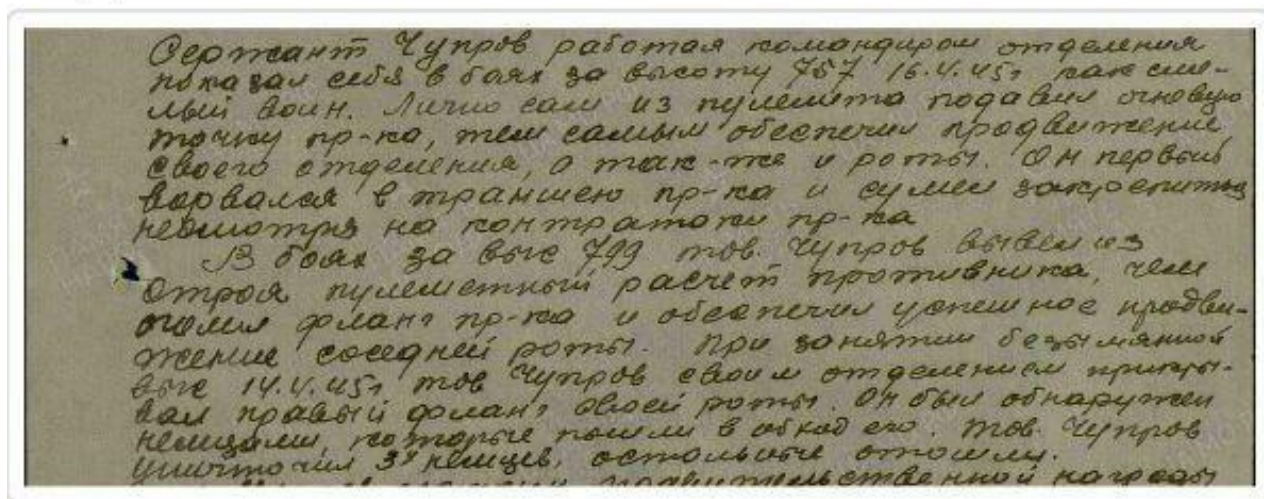 Сержант Чупров работая командиром отделения
показал себя в боях за высоту 757 16.4.45г как сме-
лый воин. Лично сам из пулемета подавил огневую
точку пр-ка, тем самым обеспечил продвижение
своего отделения, а так-же и роты. Он первый
ворвался в траншею пр-ка и сумел закрепиться
несмотря на контратаки пр-ка
В боях за выс 799 тов. Чупров вывел из
строя пулеметный расчет противника, чем
оголил фланг пр-ка и обеспечил успешное продви-
жение соседней роты. При занятии безымянной
выс 14.4.45г тов Чупров своим отделением прикры-
вал правый фланг своей роты. Он был обнаружен
немцами, которые пошли в обход его. Тов. Чупров
уничтожил 3х немцев, остальные отошли.
правительственной награды